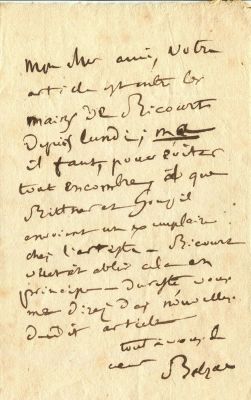 Mon cher ami, votre
article est entre les
mains de Ricourt
depuis lundi; ma
il faut, pour éviter
tout encombre, que
Rittner et Goupil
envoient un exemplaire
chez l'artiste — Ricourt
vient établi cela en
principe — du reste vous
me direz des nouvelles
dudit article
tout à vous de
cœur Balzac